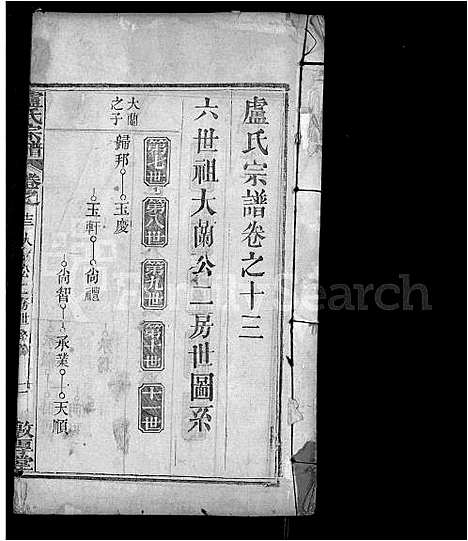 盧氏宗譜卷之十三
六世祖大蘭公二房世圖系
第七世 第八世 第九世 第十世 十一世
大蘭之子
歸邦 玉慶
玉軒 尙禮
尙智 承業 天順
盧氏宗譜 卷之十三
敦厚堂
FamilySearch